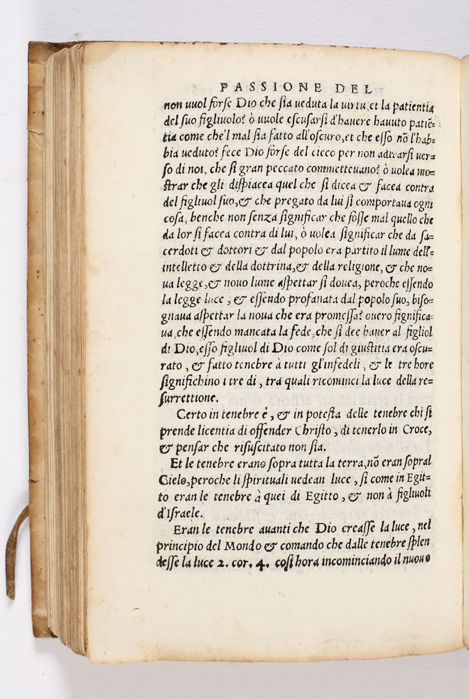 PASSIONE DEL
non uuol forse Dio che sia ueduta la uirtu, et la patientia
del suo figliuolo? ò uuole escusarsi d'hauere hauuto patiẽ=
tia come che'l mal sia fatto all'oscuro, et che esso nõ l'hab=
bia ueduto? fece Dio forse del cieco per non adirarsi uer=
so di noi, che si gran peccato commetteuano? ò uolea mo=
strar che gli dispiacea quel che si dicea & facea contra
del figliuol suo, & che pregato da lui si comportaua ogni
cosa, benche non senza significar che fosse mal quello che
da lor si facea contra di lui, ò uolea significar che da sa=
cerdoti & dottori & dal popolo era partito il lume dell'=
intelletto & della dottrina, & della religione, & che no=
ua legge, & nouo lume aspettar si douea, peroche essendo
la legge luce, & essendo profanata dal popolo suo, biso=
gnaua aspettar la noua che era promessa? ouero significa=
ua, che essendo mancata la fede, che si dee hauer al figliol
di Dio, esso figliuol di Dio come sol di giustitia era oscu=
rato, & fatto tenebre à tutti gl'infedeli, & le tre hore
significhino i tre dì, tra quali ricominci la luce della re=
surrettione.
Certo in tenebre è, & in potesta delle tenebre chi si
prende licentia di offender Christo, di tenerlo in Croce,
& pensar che risuscitato non sia.
Et le tenebre erano sopra tutta la terra, nõ eran sopral
Cielo, peroche li spirituali uedean luce, si come in Egit=
to eran le tenebre à quei di Egitto, & non à figliuoli
d'Israele.
Eran le tenebre auanti che Dio creasse la luce, nel
principio del Mondo & comando che dalle tenebre splen
desse la luce 2. cor. 4. cosi hora incominciando il nuouo